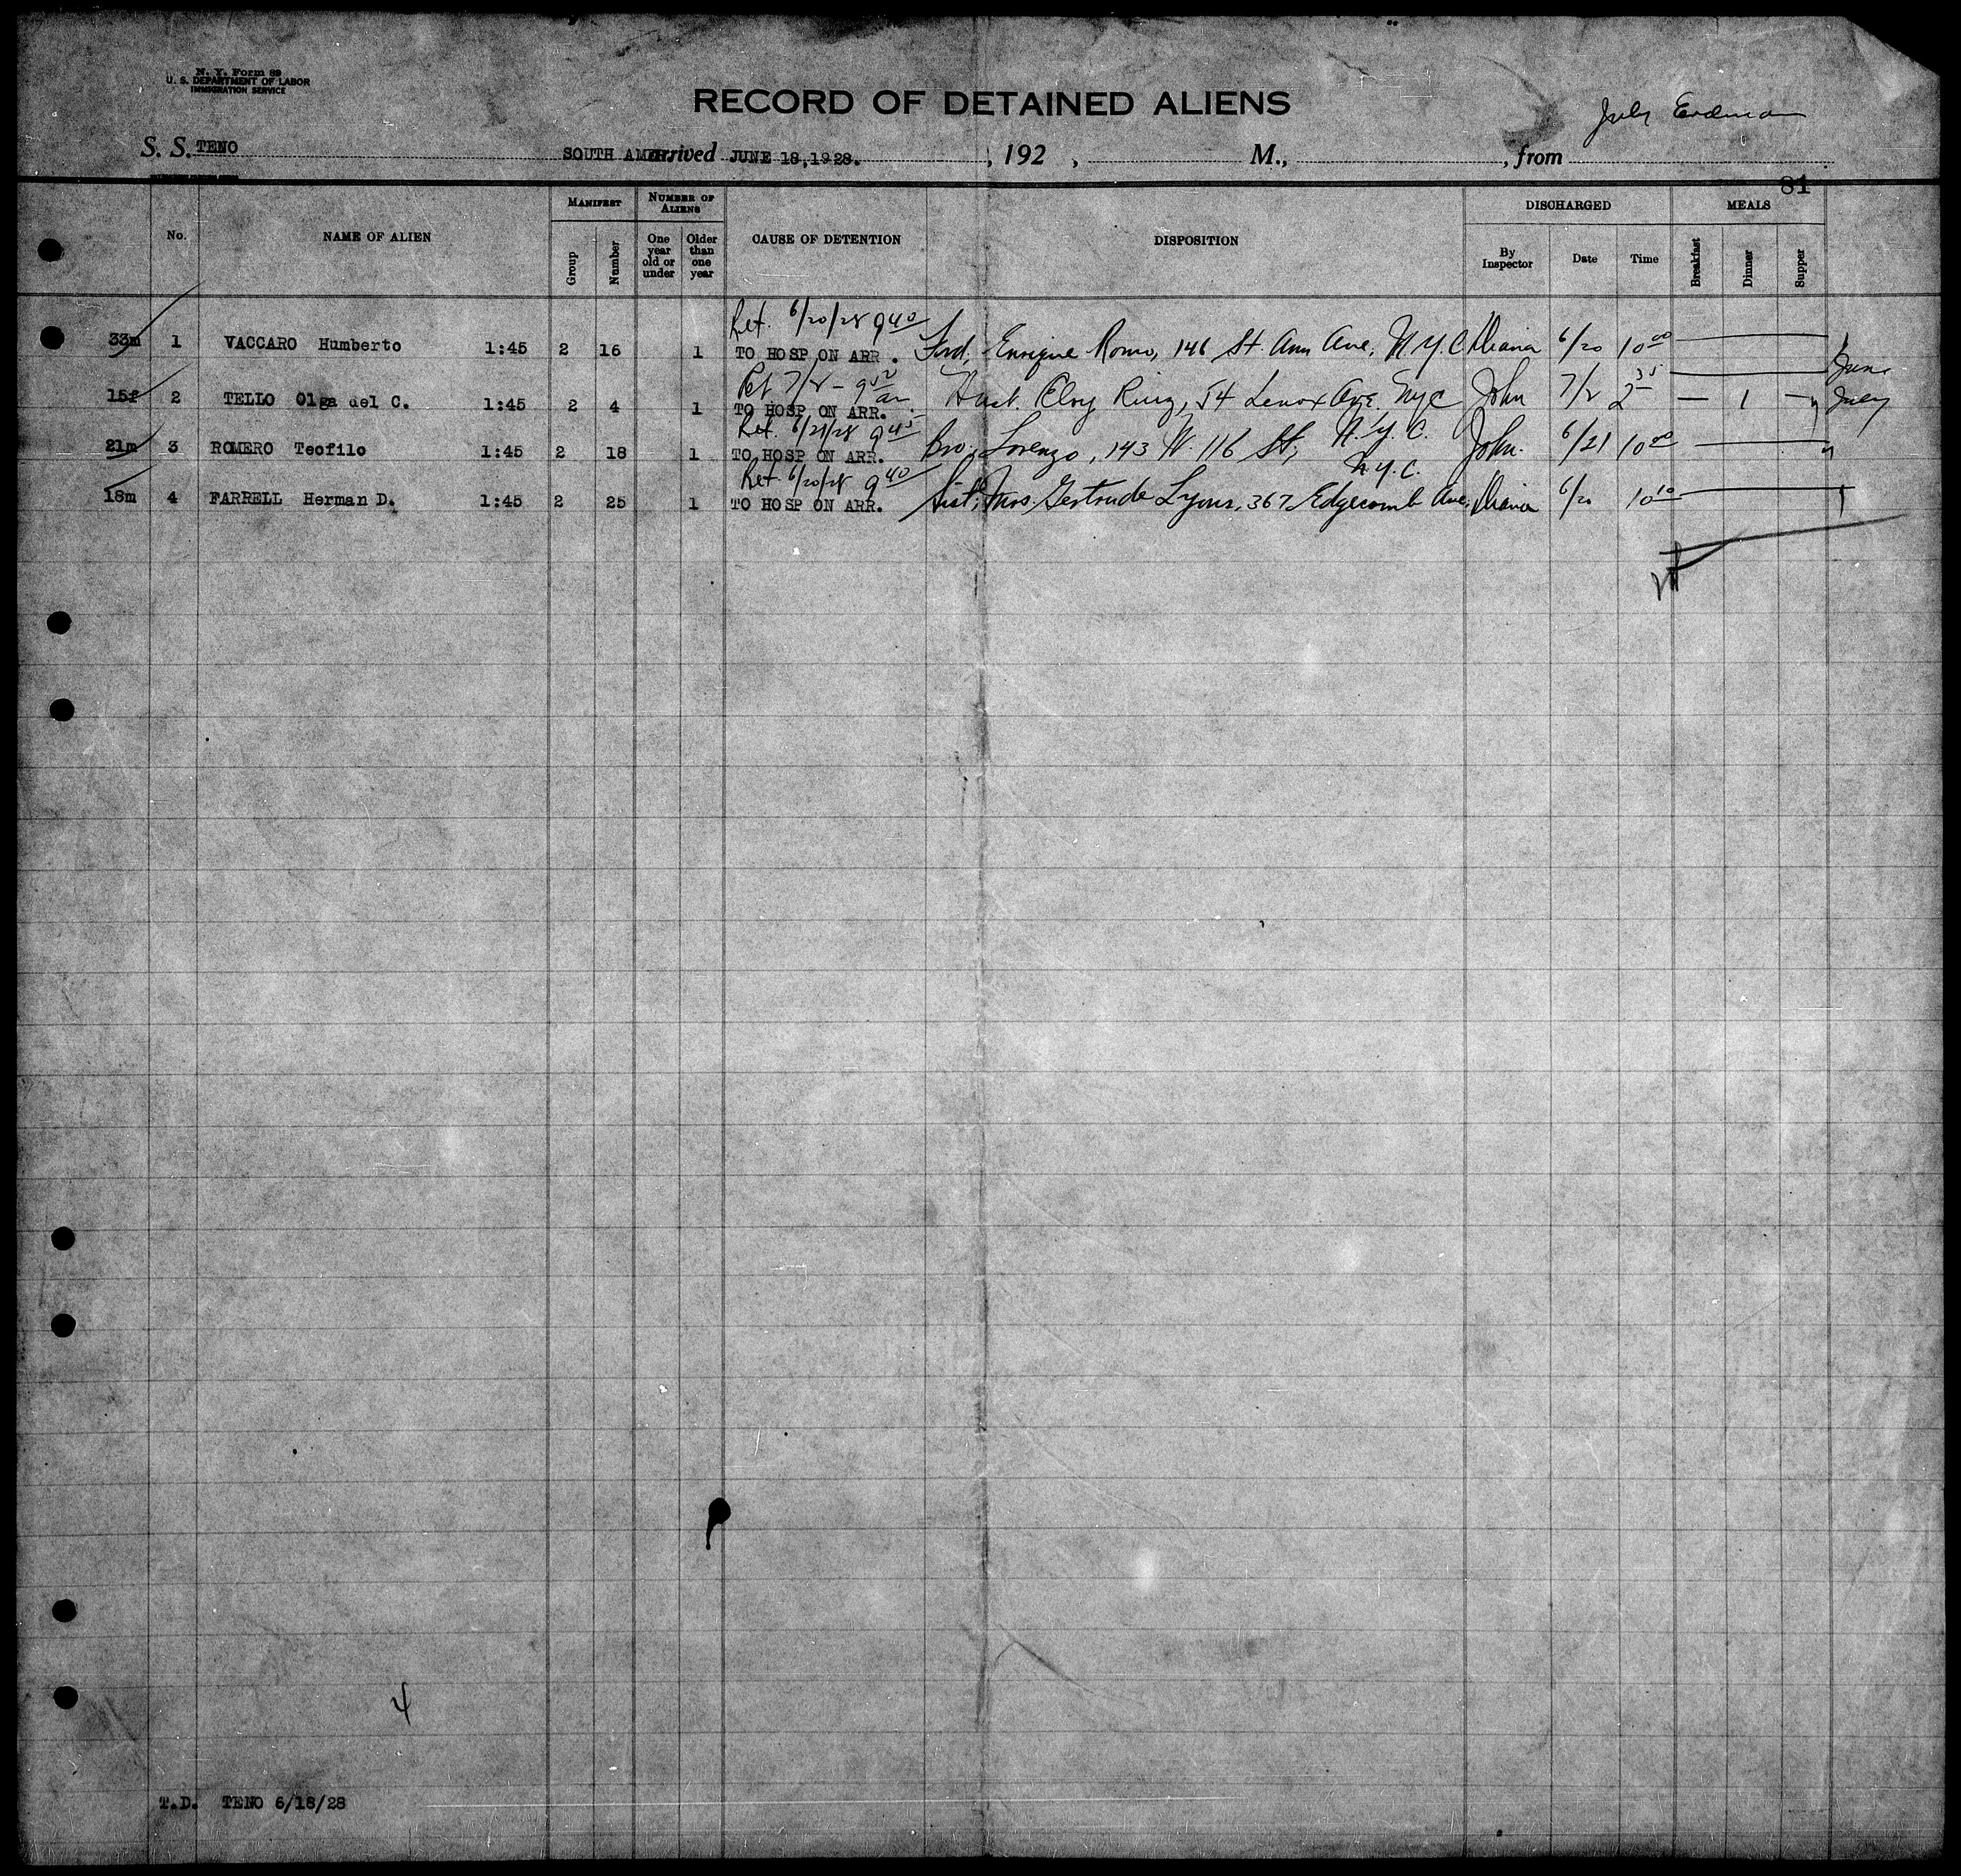 N. Y. Form 89
U. S. DEPARTMENT OF LABOR
IMMIGRATION SERVICE
RECORD OF DETAINED ALIENS
S. S. TENO SOUTH AMER. arrived JUNE 18,1928. , 192 , M., , from
81
No. NAME OF ALIEN MANIFEST Group Number NUMBER OF ALIENS One year old or under Older than one year CAUSE OF DETENTION DISPOSITION DISCHARGED By Inspector Date Time MEALS Breakfast Dinner Supper
Ret. 6/20/28 9 40
33m 1 VACCARO Humberto 1:45 2 16 1 TO HOSP ON ARR . Frd, Enrique Romo, 146 St. Ann Ave, N.Y.C. 6/20 10 00
June
Ret 7/2 - 9 50 am
15f 2 TELLO Olga del C. 1:45 2 4 1 TO HOSP ON ARR. Husb. Eloy Ruiz, 54 Lenox Ave. NYC John 7/2 2 35 — 1 — July
Ret. 6/21/28 9 45
21m 3 ROMERO Teofilo 1:45 2 18 1 TO HOSP ON ARR. Bro; Lorenzo, 143 W. 116 St; N.Y.C. John. 6/21 10 00
Ret 6/20/28 9 40
18m 4 FARRELL Herman D. 1:45 2 25 1 TO HOSP ON ARR. Sist; Mrs. Gertrude Lyons, 367 Edgecomb Ave, N.Y.C. 6/20 10 10
4
T.D. TENO 6/18/28